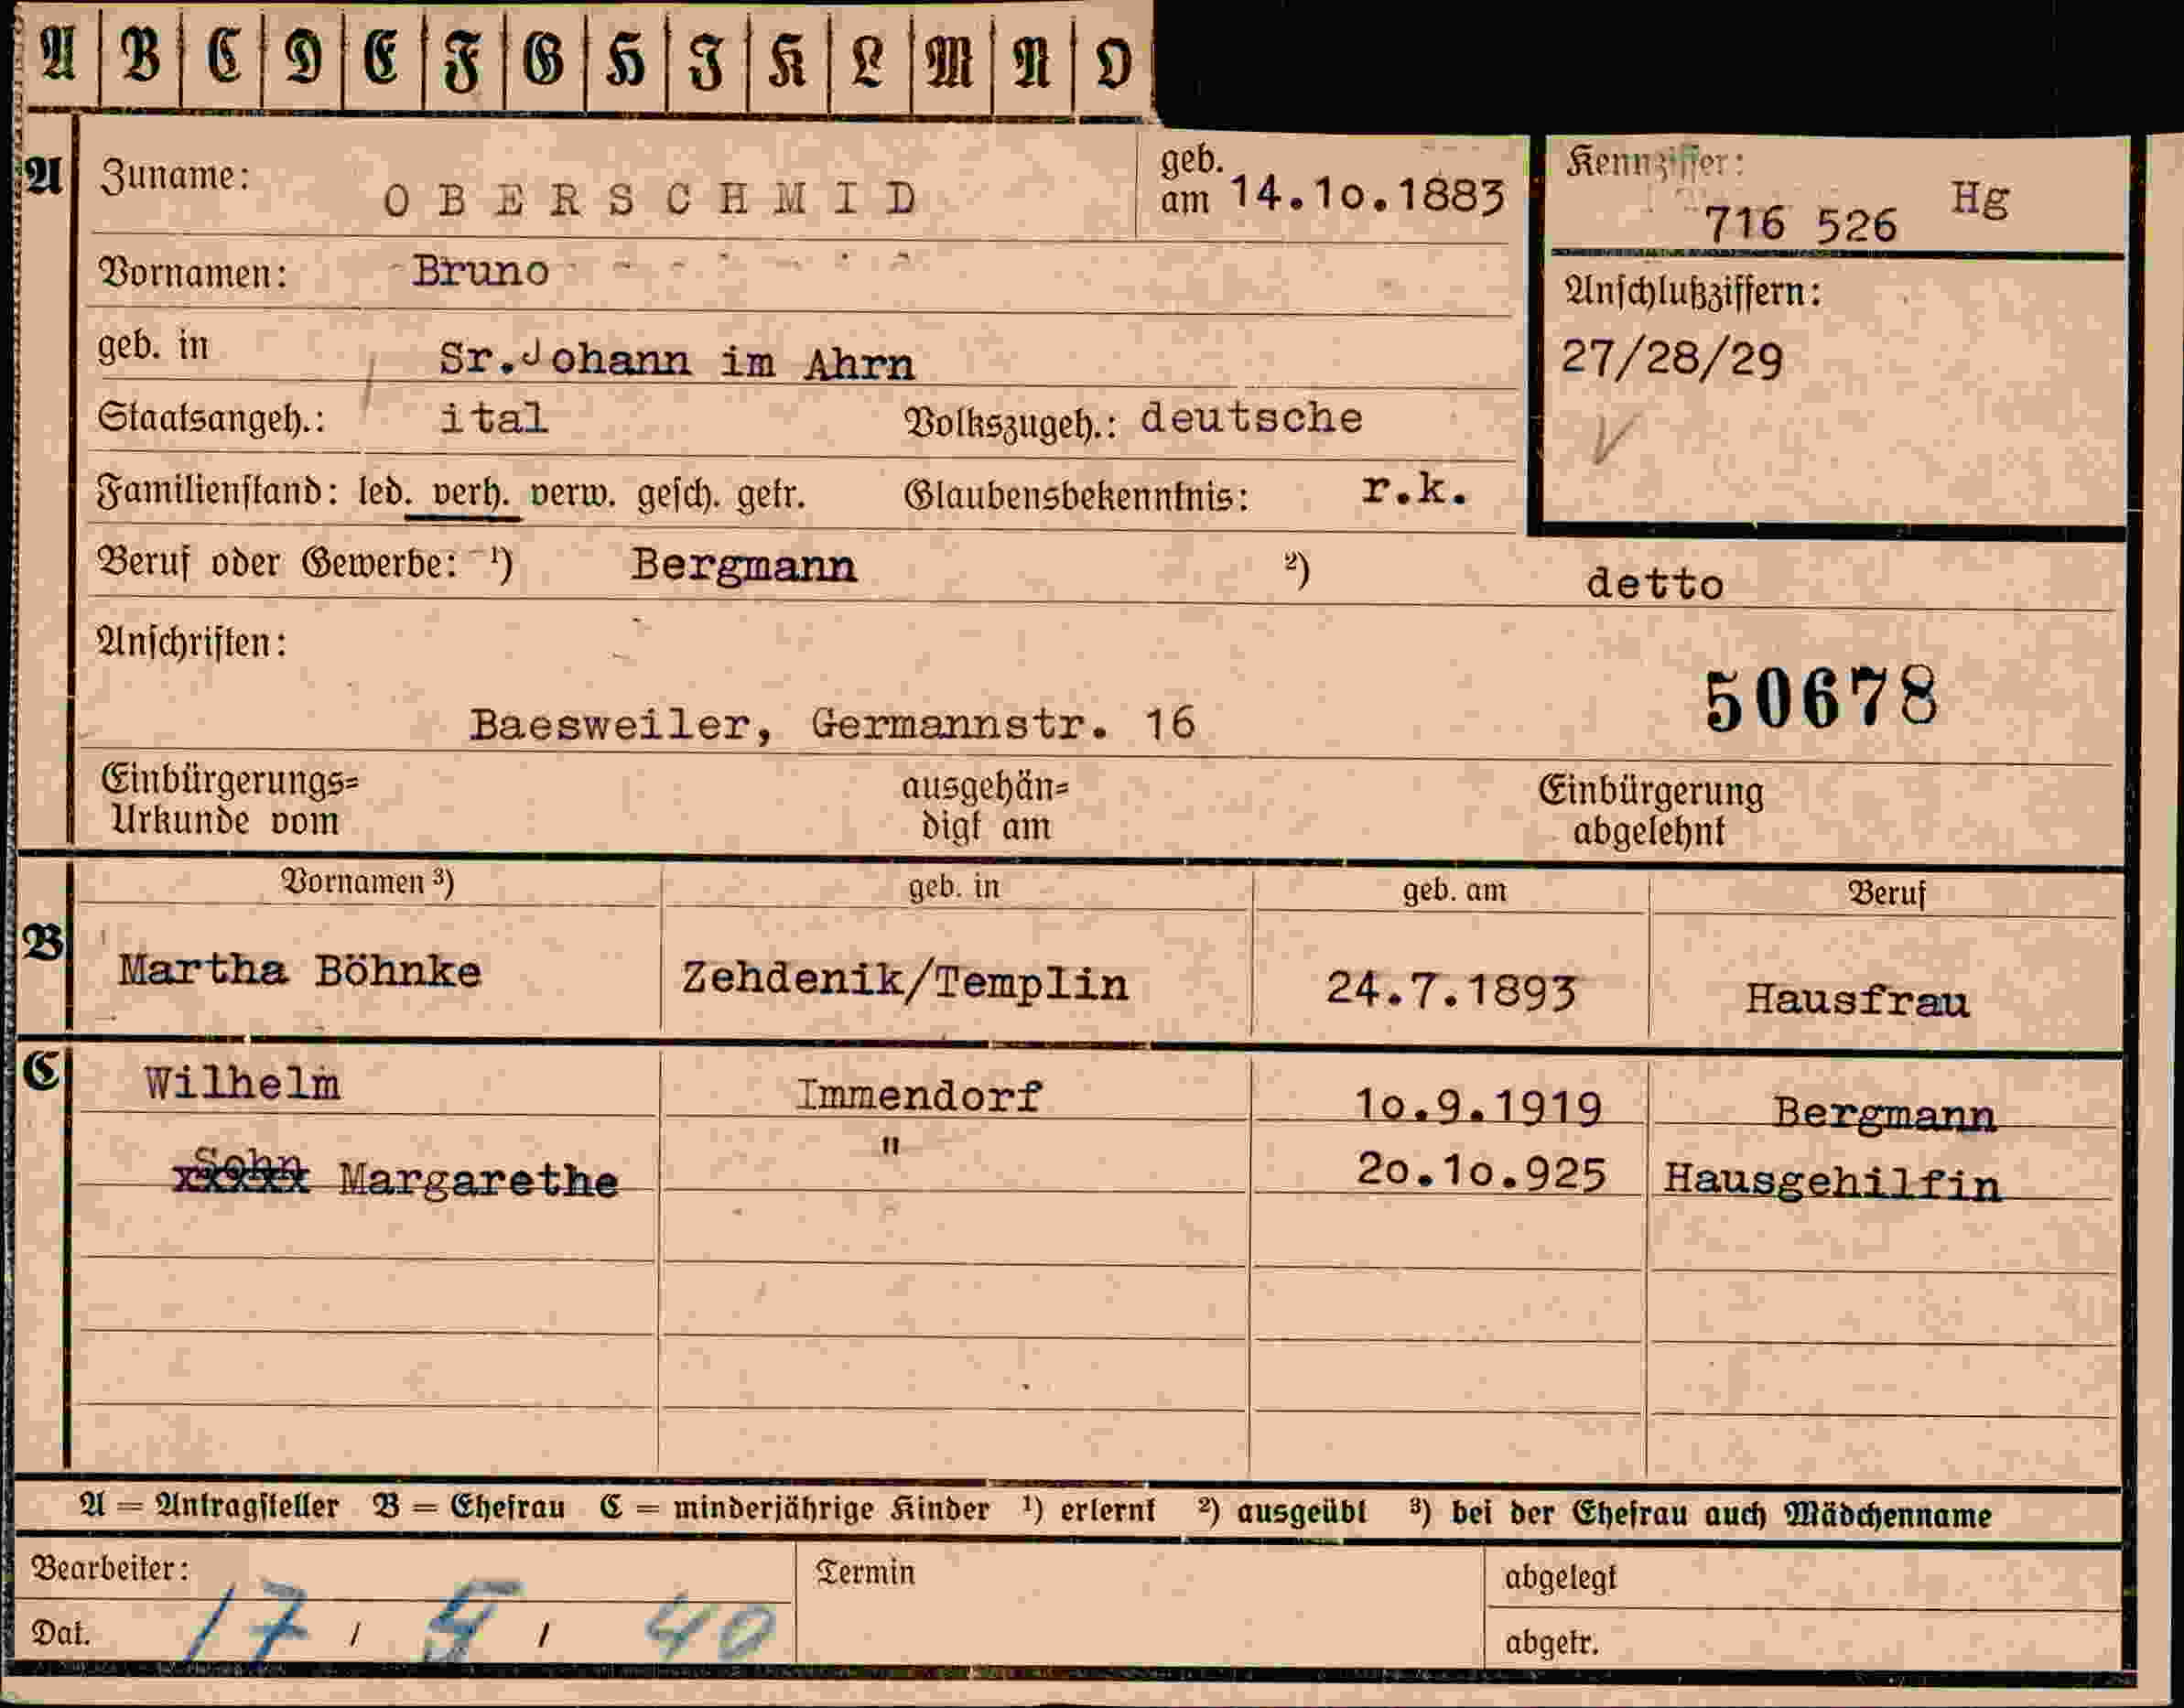 A B C D E F G H I K L M N O
A Zuname: OBERSCHMID geb. am 14.10.1883 Kennziffer: 716 526 Hg
Vornamen: Bruno - - - - - - Anschlußziffern:
geb. in Sr.Johann im Ahrn 27/28/29
Staatsangeh.: ital Volkszugeh.: deutsche V
Familienstand: led. verh. verw. gesch. getr. Glaubensbekenntnis: r.k.
Beruf oder Gewerbe: ¹) Bergmann ²) detto
Anschriften:
50678
Baesweiler, Germannstr. 16
Einbürgerungs= ausgehän= Einbürgerung
Urkunde vom digt am abgelehnt
Vornamen ³) geb. in geb. am Beruf
B Martha Böhnke Zehdenik/Templin 24.7.1893 Hausfrau
C Wilhelm Immendorf 10.9.1919 Bergmann
Sohn Margarethe " 20.10.925 Hausgehilfin
A = Antragsteller B = Ehefrau C = minderjährige Kinder ¹) erlernt ²) ausgeübt ³) bei der Ehefrau auch Mädchenname
Bearbeiter: Termin abgelegt
Dat. 17 / 5 / 40 abgetr.